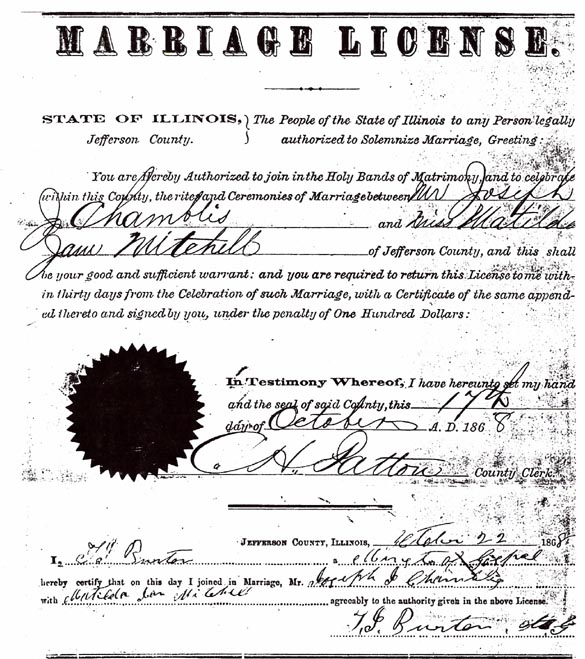 MARRIAGE LICENSE.
STATE OF ILLINOIS, } The People of the State of Illinois to any Person legally
Jefferson County. authorized to Solemnize Marriage, Greeting:
You are hereby Authorized to join in the Holy Bands of Matrimony, and to celebrate
within this County, the rites and Ceremonies of Marriage between Mr Joseph
J Chambles and Miss Matilda
Jane Mitchell of Jefferson County, and this shall
be your good and sufficient warrant: and you are required to return this License to me with-
in thirty days from the Celebration of such Marriage, with a Certificate of the same append-
ed thereto and signed by you, under the penalty of One Hundred Dollars:
In Testimony Whereof, I have hereunto set my hand
and the seal of said County, this 17th
day of October A. D. 1868
C H. Patton County Clerk.
JEFFERSON COUNTY, ILLINOIS, October 22 1868
I, Burton a of Gospel
hereby certify that on this day I joined in Marriage, Mr. Joseph J Chambles
with Matilda Jan Mitchell agreeably to the authority given in the above License.
Burton